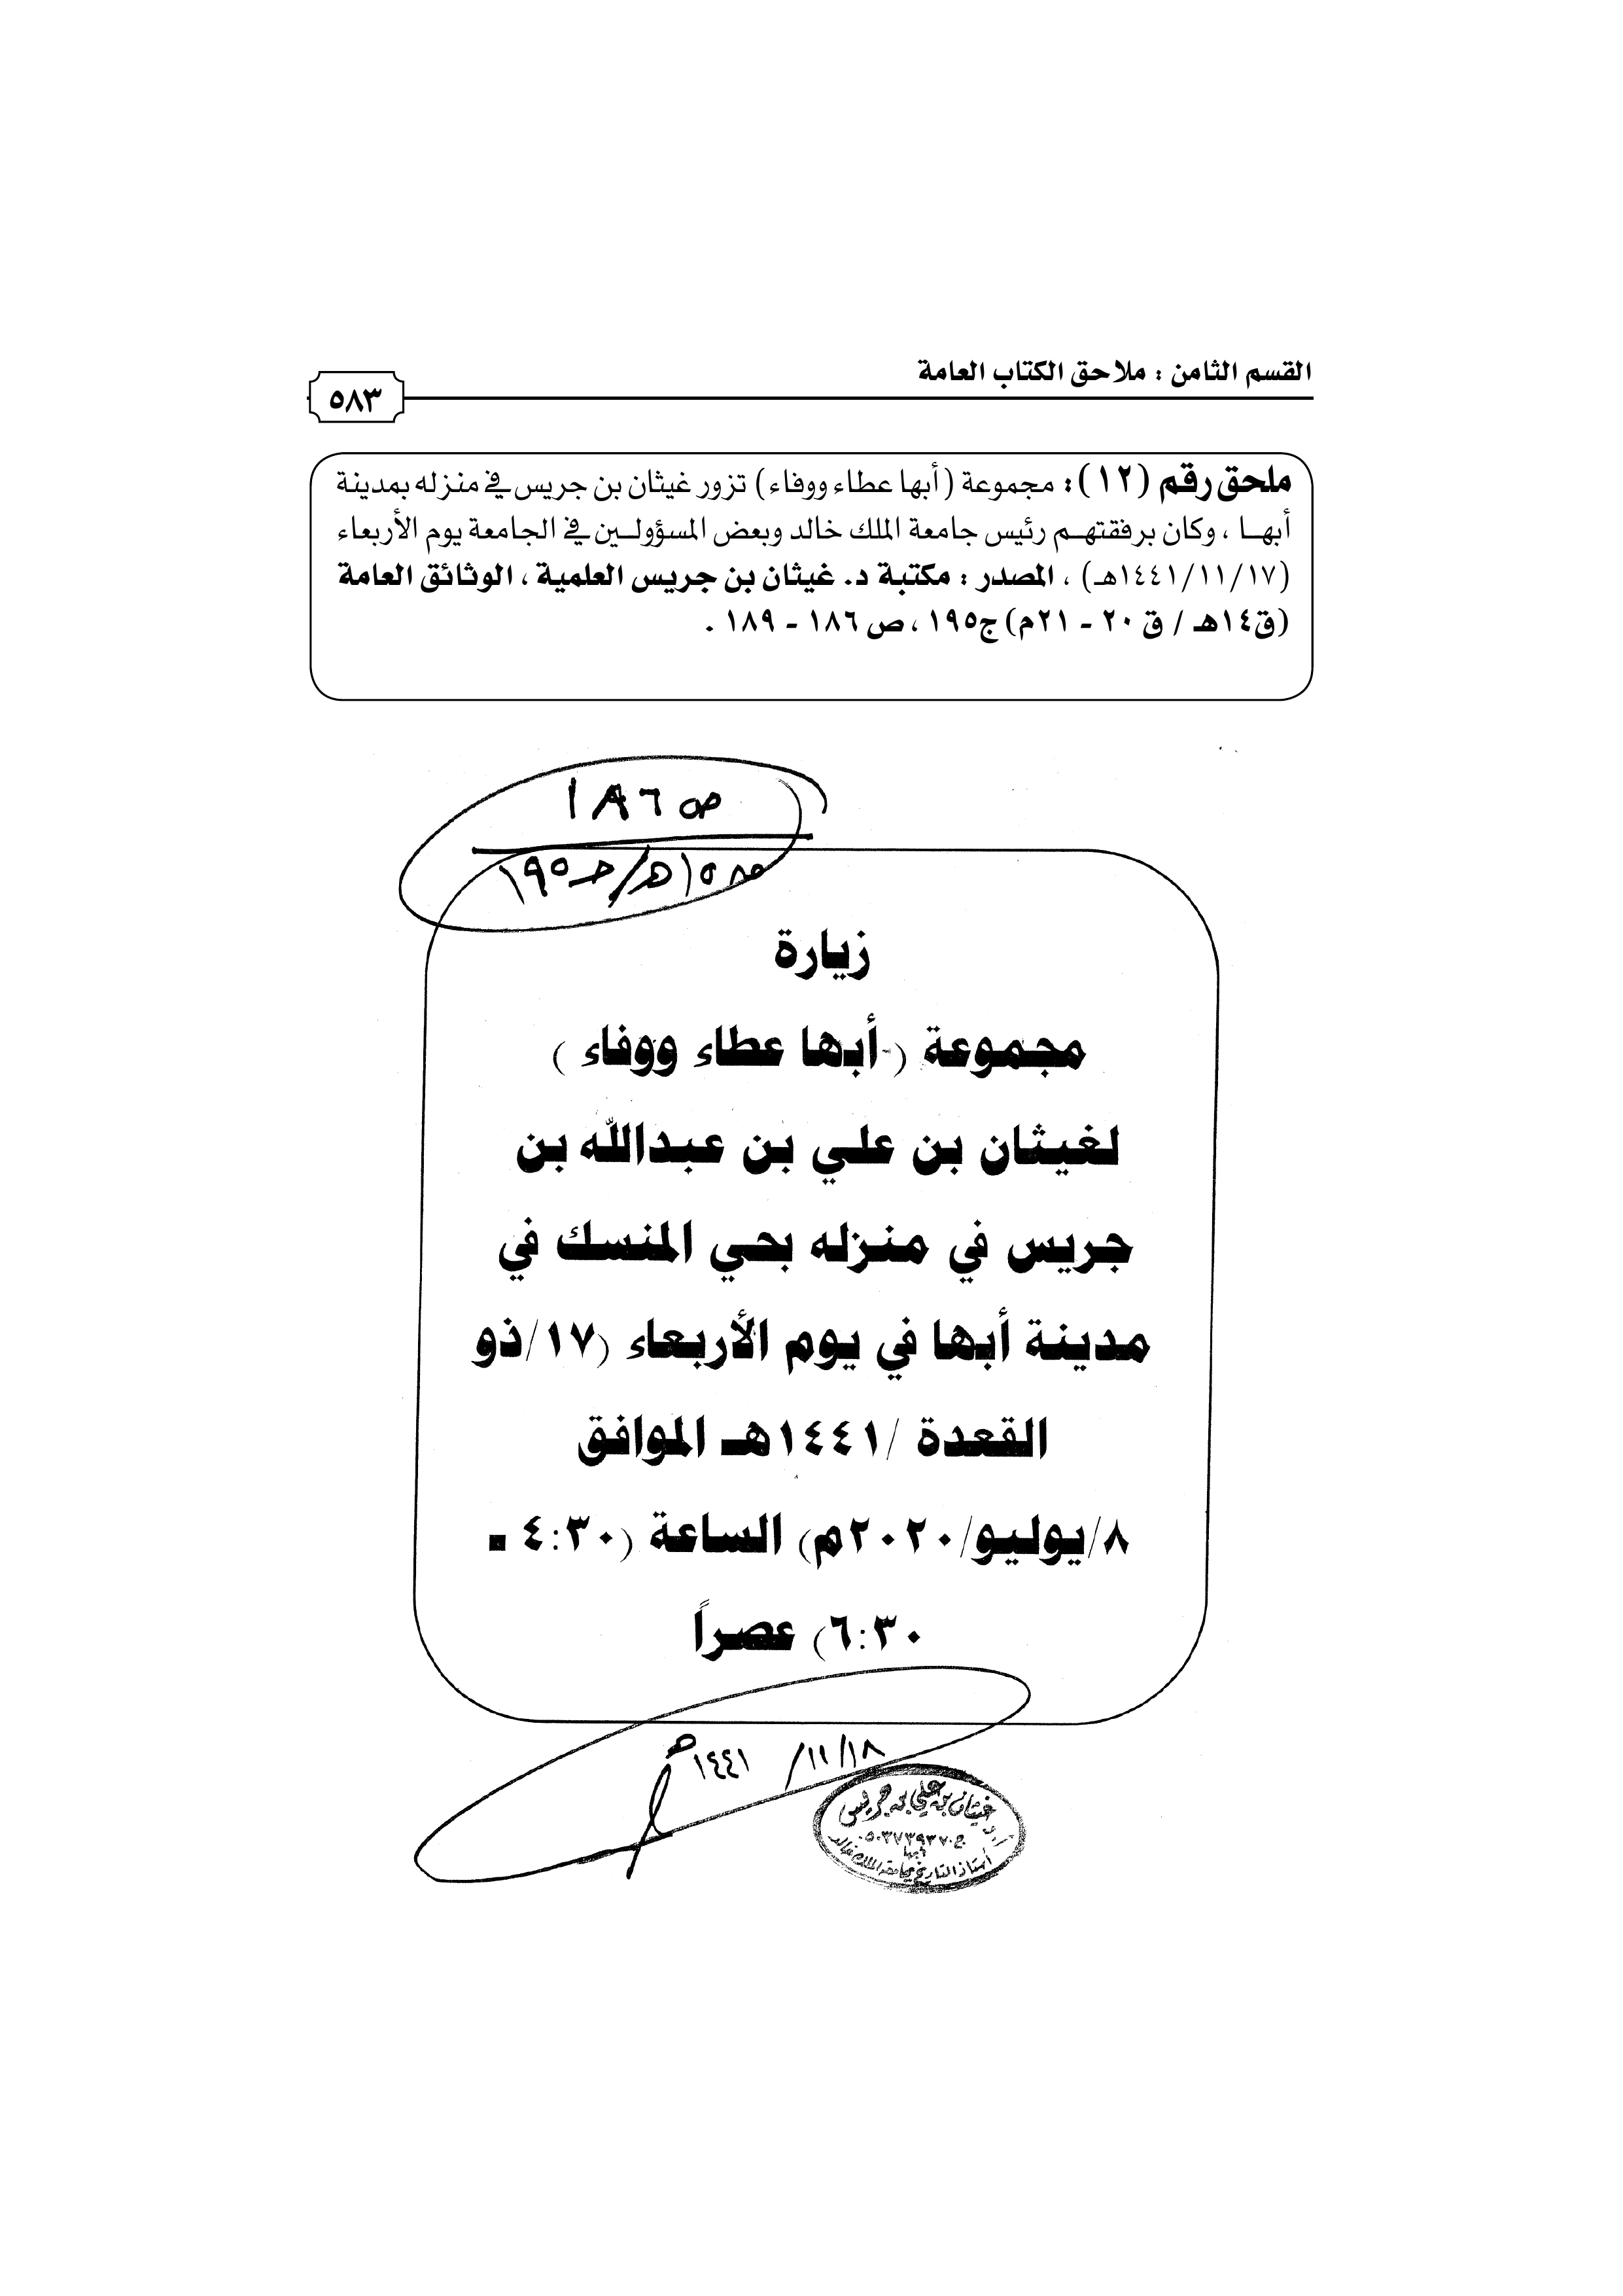 القسم الثامن : ملاحق الكتاب العامة
٥٨٣
ملحق رقم (١٢): مجموعة (أبها عطاء ووفاء) تزور غيثان بن جريس في منزله بمدينة
أبهـا ، وكان برفقتهـم رئيس جامعة الملك خالد وبعض المسؤولـين في الجامعة يوم الأربعاء
(١٤٤١/١١/١٧هـ) ، المصدر : مكتبة د. غيثان بن جريس العلمية ، الوثائق العامة
(ق١٤هـ / ق ٢٠ - ٢١م) ج١٩٥ ، ص ١٨٦ - ١٨٩ .
ص ١٨٦
١٥هـ/جـ١٩٥
زيارة
مجموعة (أبها عطاء ووفاء )
لغيثان بن علي بن عبدالله بن
جريس في منزله بحي المنسك في
مدينة أبها في يوم الأربعاء (١٧/ذو
القعدة /١٤٤١هـ الموافق
٨/يوليو/٢٠٢٠م) الساعة (٤:٣٠ -
٦:٣٠) عصراً
١٨/١١/ ١٤٤١هـ
أ.د. غيثان بن علي بن جريس
ج٠٥٠٣٧٣٩٣٧٠
أبها
أستاذ التاريخ بجامعة الملك خالد